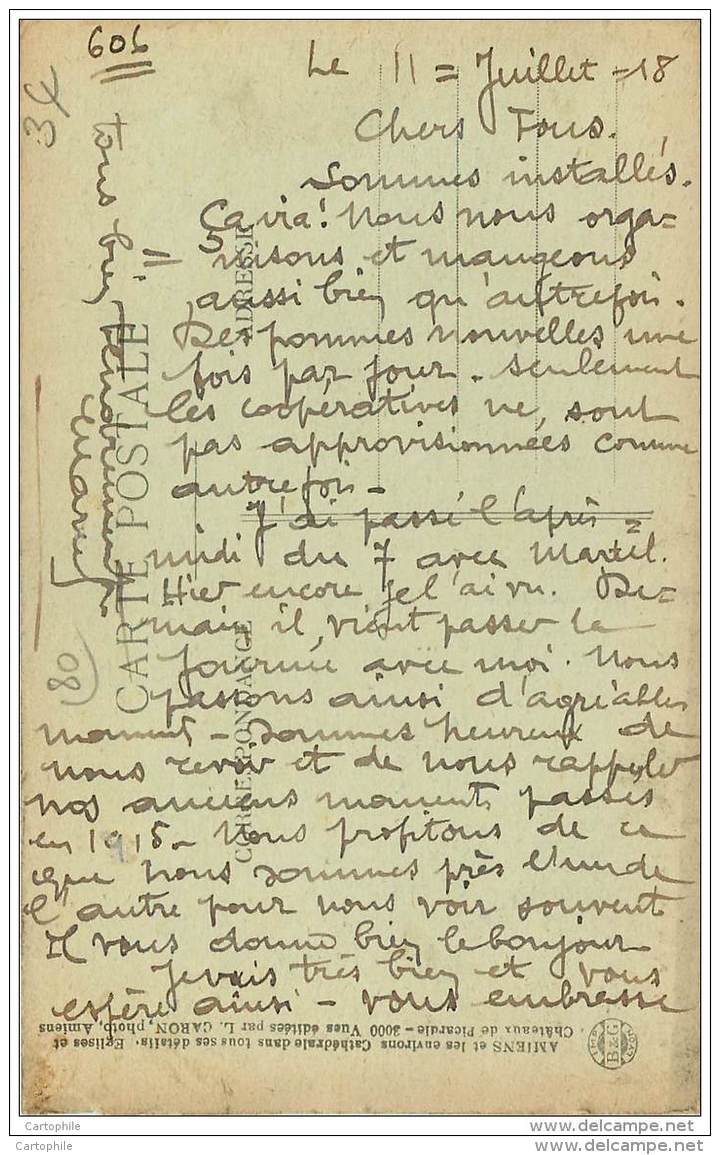 606
34
Le 11 = Juillet - 18
Chers Tous.
Sommes installés.
Ça va! Nous nous orga=
nisons et mangeons
aussi bien qu'autrefois.
Des pommes nouvelles une
fois par jour. Seulement
les coopératives ne sont
pas approvisionnées comme
autrefois -
J'ai passé l'après =
midi du 7 avec Martel.
Hier encore je l'ai vu. De=
main il vient passer la
journée avec moi. Nous
passons ainsi d'agréables
moments - Sommes heureux de
nous revoir et de nous rappeler
nos anciens moments passés
en 1915 - Nous profitons de ce
que nous sommes près l'un de
l'autre pour nous voir souvent
Il vous donne bien le bonjour
Je vais très bien et vous
espère ainsi - vous embrasse
tous bien tendrement
80
CARTE POSTALE
CORRESPONDANCE
ADRESSE
AMIENS et les environs Cathédrale dans tous ses détails. Eglises et
Châteaux de Picardie - 3000 Vues éditées par L. CARON, photo, Amiens
B & G
Cartophile
Cartophile
www.delcampe.net
www.delcampe.net